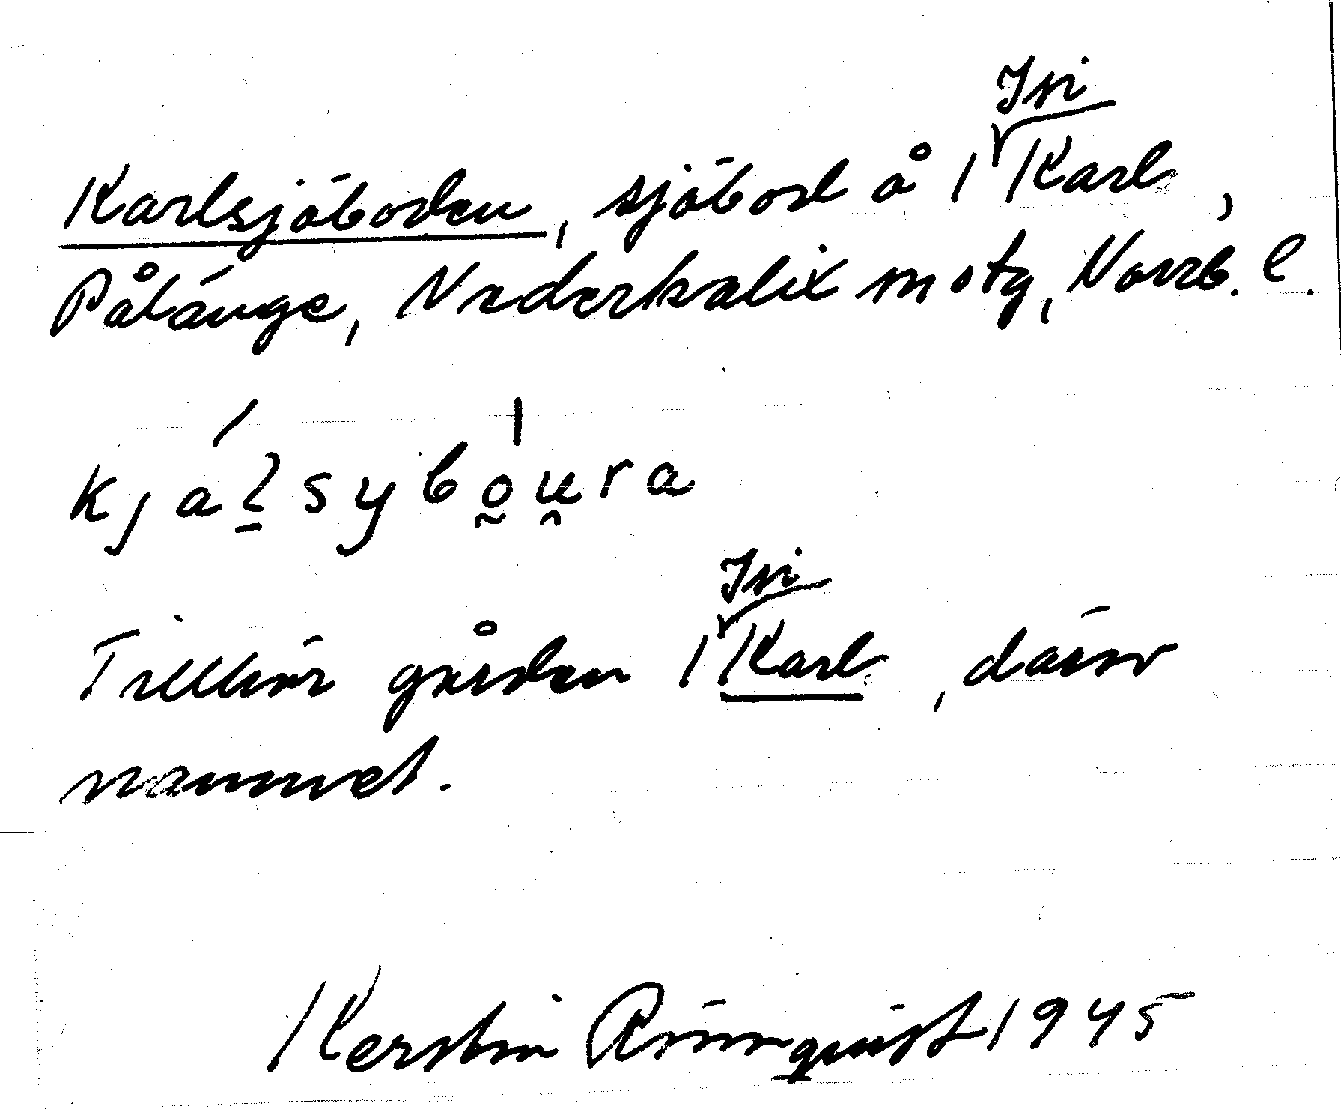 Karlsjöboden, sjöbod å 1 Isi Karl,
Pålänge, Nederkalix mstg, Norrb. l.
kjálsybo̰u̯ra
Tillhör gården 1 Isi Karl, därav
namnet.
Kerstin Rönnqvist 1945